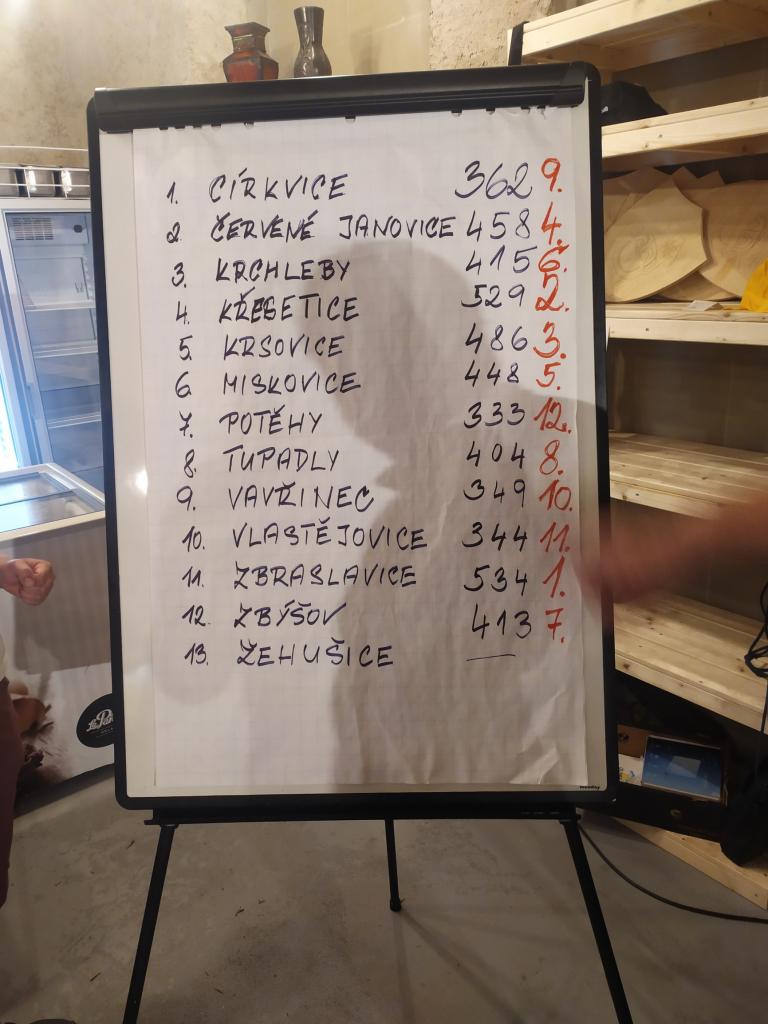 1. CÍRKVICE 362 9.
2. ČERVENÉ JANOVICE 458 4.
3. KRCHLEBY 415 6.
4. KŘESETICE 529 2.
5. KRSOVICE 486 3.
6. MISKOVICE 448 5.
7. POTĚHY 333 12.
8. TUPADLY 404 8.
9. VAVŘINEC 349 10.
10. VLASTĚJOVICE 344 11.
11. ZBRASLAVICE 534 1.
12. ZBÝŠOV 413 7.
13. ŽEHUŠICE —